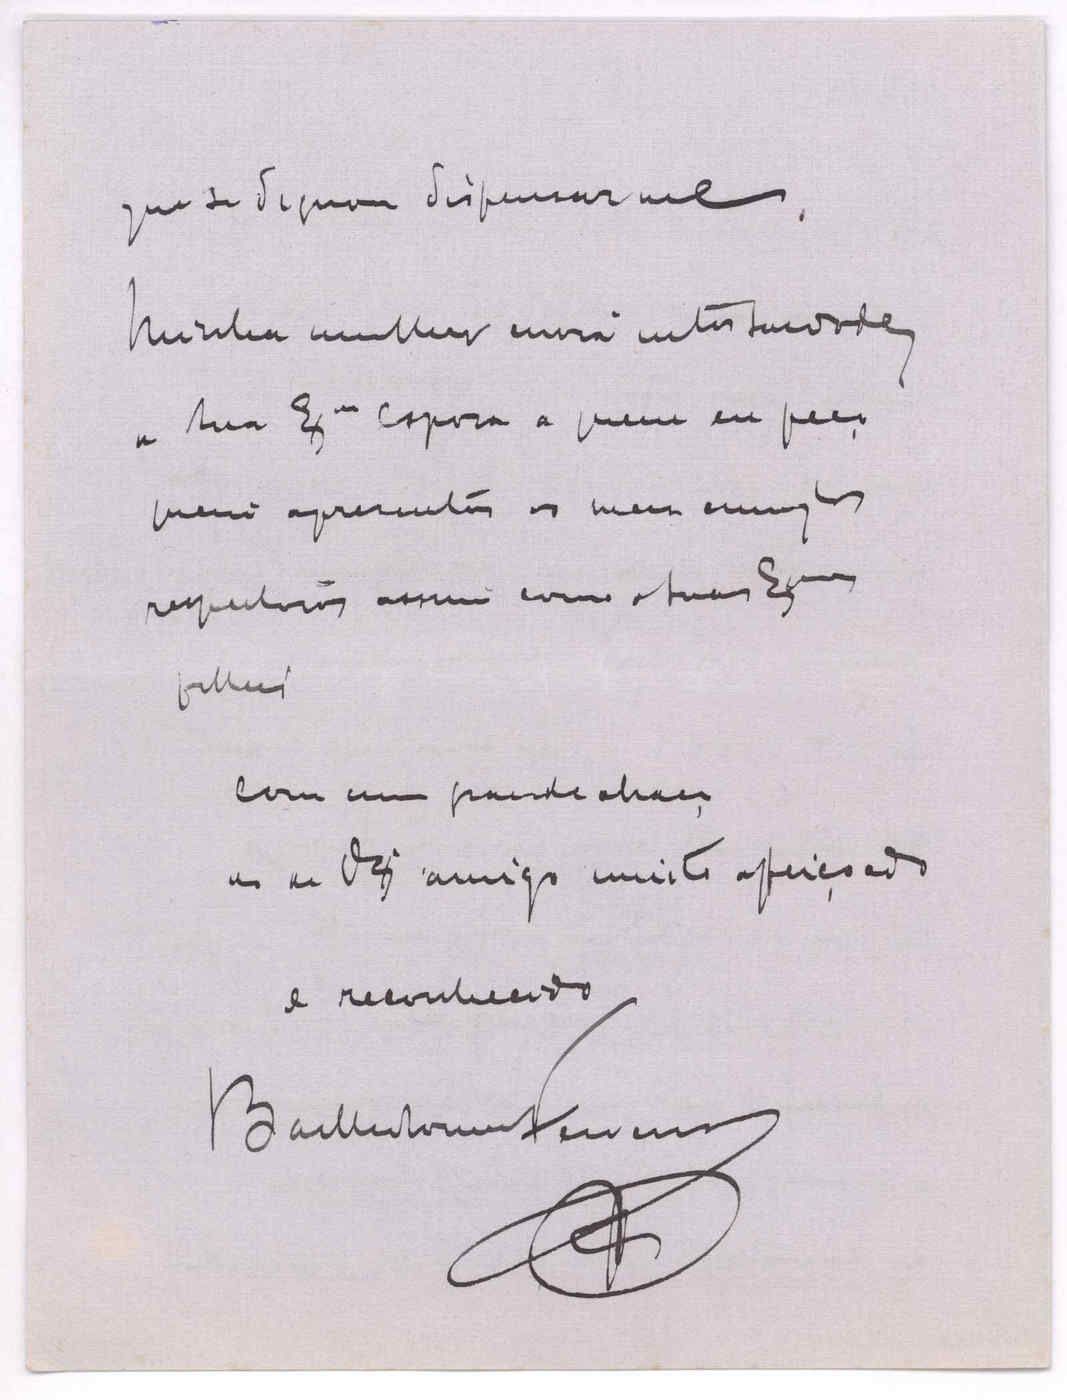 que se dignou dispensar me.
Minha mulher envia muitas saudades
a sua Exma Esposa a quem eu peço
queira apresentar os meus cumptos
respeitosos assim como a suas Exmas
filhas
Com um grande abraço
do de VExa amigo muito afeiçoado
e reconhecido
Bartholomeu Ferreira